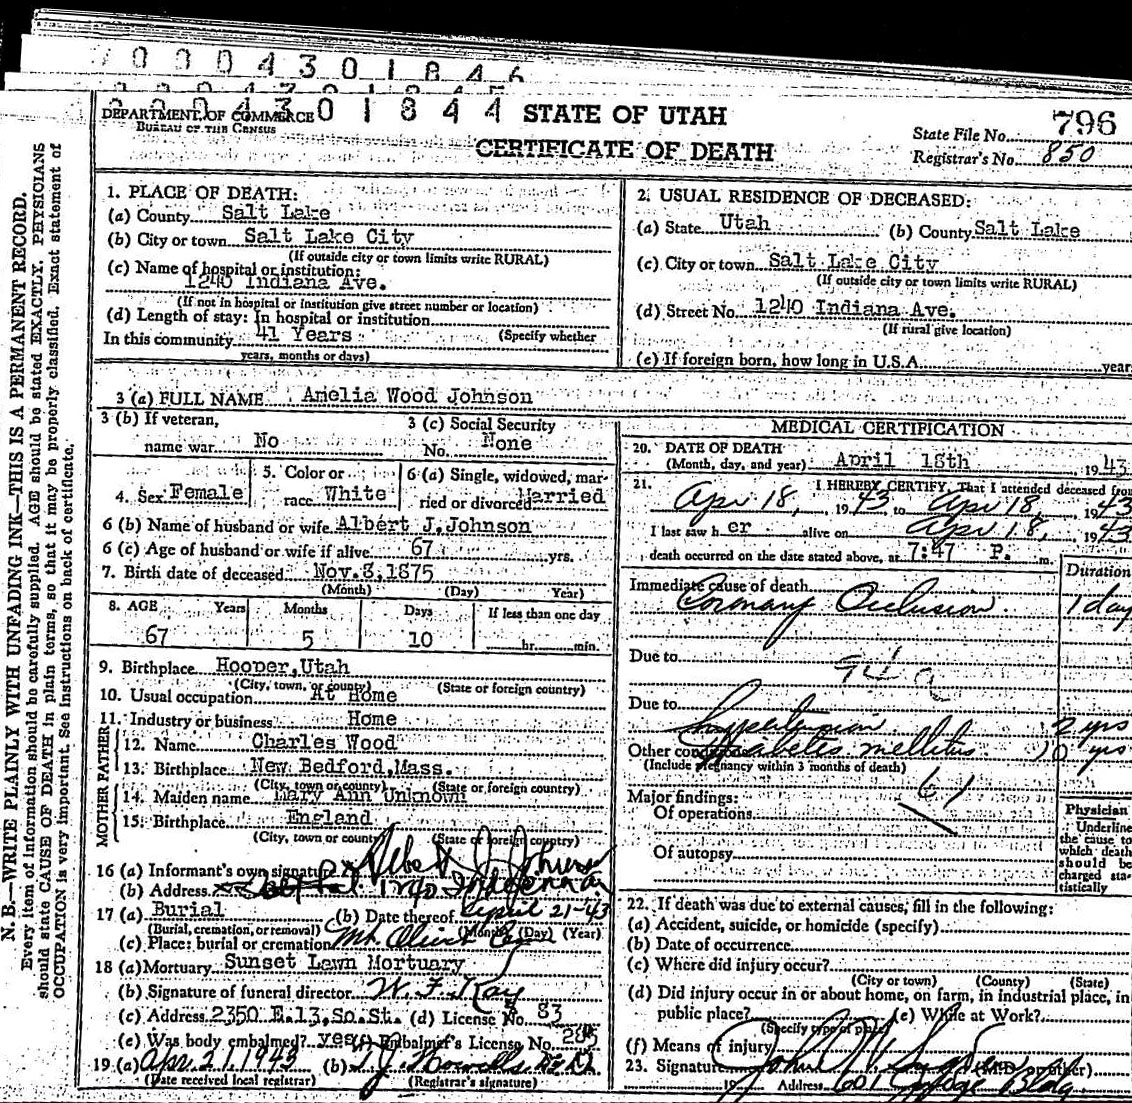 0 0 0 4 3 0 1 8 4 6
0 0 0 4 3 0 1 8 4 4
DEPARTMENT OF COMMERCE
BUREAU OF THE CENSUS
STATE OF UTAH
CERTIFICATE OF DEATH
State File No. 796
Registrar's No. 850
N. B.—WRITE PLAINLY WITH UNFADING INK—THIS IS A PERMANENT RECORD.
Every item of information should be carefully supplied. AGE should be stated EXACTLY. PHYSICIANS
should state CAUSE OF DEATH in plain terms, so that it may be properly classified. Exact statement of
OCCUPATION is very important. See instructions on back of certificate.
1. PLACE OF DEATH:
(a) County Salt Lake
(b) City or town Salt Lake City
(If outside city or town limits write RURAL)
(c) Name of hospital or institution:
1240 Indiana Ave.
(If not in hospital or institution give street number or location)
(d) Length of stay: In hospital or institution
In this community 41 Years (Specify whether
years, months or days)
2. USUAL RESIDENCE OF DECEASED:
(a) State Utah (b) County Salt Lake
(c) City or town Salt Lake City
(If outside city or town limits write RURAL)
(d) Street No. 1240 Indiana Ave.
(If rural give location)
(e) If foreign born, how long in U.S.A. year
3 (a) FULL NAME Amelia Wood Johnson
3 (b) If veteran,
name war No
3 (c) Social Security
No. None
4. Sex Female
5. Color or
race White
6 (a) Single, widowed, mar-
ried or divorced Married
6 (b) Name of husband or wife Albert J. Johnson
6 (c) Age of husband or wife if alive 67 yrs.
7. Birth date of deceased Nov. 8, 1875
(Month) (Day) Year)
8. AGE Years Months Days If less than one day
67 5 10 hr. min.
9. Birthplace Hooper, Utah
(City, town, or county) (State or foreign country)
10. Usual occupation At Home
11. Industry or business Home
FATHER
12. Name Charles Wood
13. Birthplace New Bedford, Mass.
(City, town or county) (State or foreign country)
MOTHER
14. Maiden name Mary Ann Unknown
15. Birthplace England
(City, town or county) (State of foreign country)
16 (a) Informant's own signature
(b) Address 1240
17 (a) Burial (b) Date thereof April 21-43
(Burial, cremation, or removal) (Month) (Day) (Year)
(c) Place: burial or cremation Mt. Olivet
18 (a) Mortuary Sunset Lawn Mortuary
(b) Signature of funeral director W. F. Kay
(c) Address 2350 E. 13, So. St. (d) License No. 83
(e) Was body embalmed? yes (f) Embalmer's License No. 285
19 (a) Apr. 21, 1943 (b)
(Date received local registrar) (Registrar's signature)
MEDICAL CERTIFICATION
20. DATE OF DEATH
(Month, day, and year) April 18th 1943
21. I HEREBY CERTIFY, That I attended deceased from
Apr 18, 1943, to Apr 18, 1943
I last saw her alive on Apr 18, 1943
death occurred on the date stated above, at 7:47 P. m.
Duration
Immediate cause of death
Coronary Occlusion 1 day
Due to 94 a
Due to
hypertension 2 yrs
Other conditions Diabetes mellitus 10 yrs
(Include pregnancy within 3 months of death)
61
Major findings:
Of operations
Of autopsy
Physician
Underline
the cause to
which death
should be
charged sta-
tistically
22. If death was due to external causes, fill in the following:
(a) Accident, suicide, or homicide (specify)
(b) Date of occurrence
(c) Where did injury occur?
(City or town) (County) (State)
(d) Did injury occur in or about home, on farm, in industrial place, in
public place? (e) While at Work?
(Specify type of place)
(f) Means of injury
23. Signature John
19 Address 601 Judge Bldg